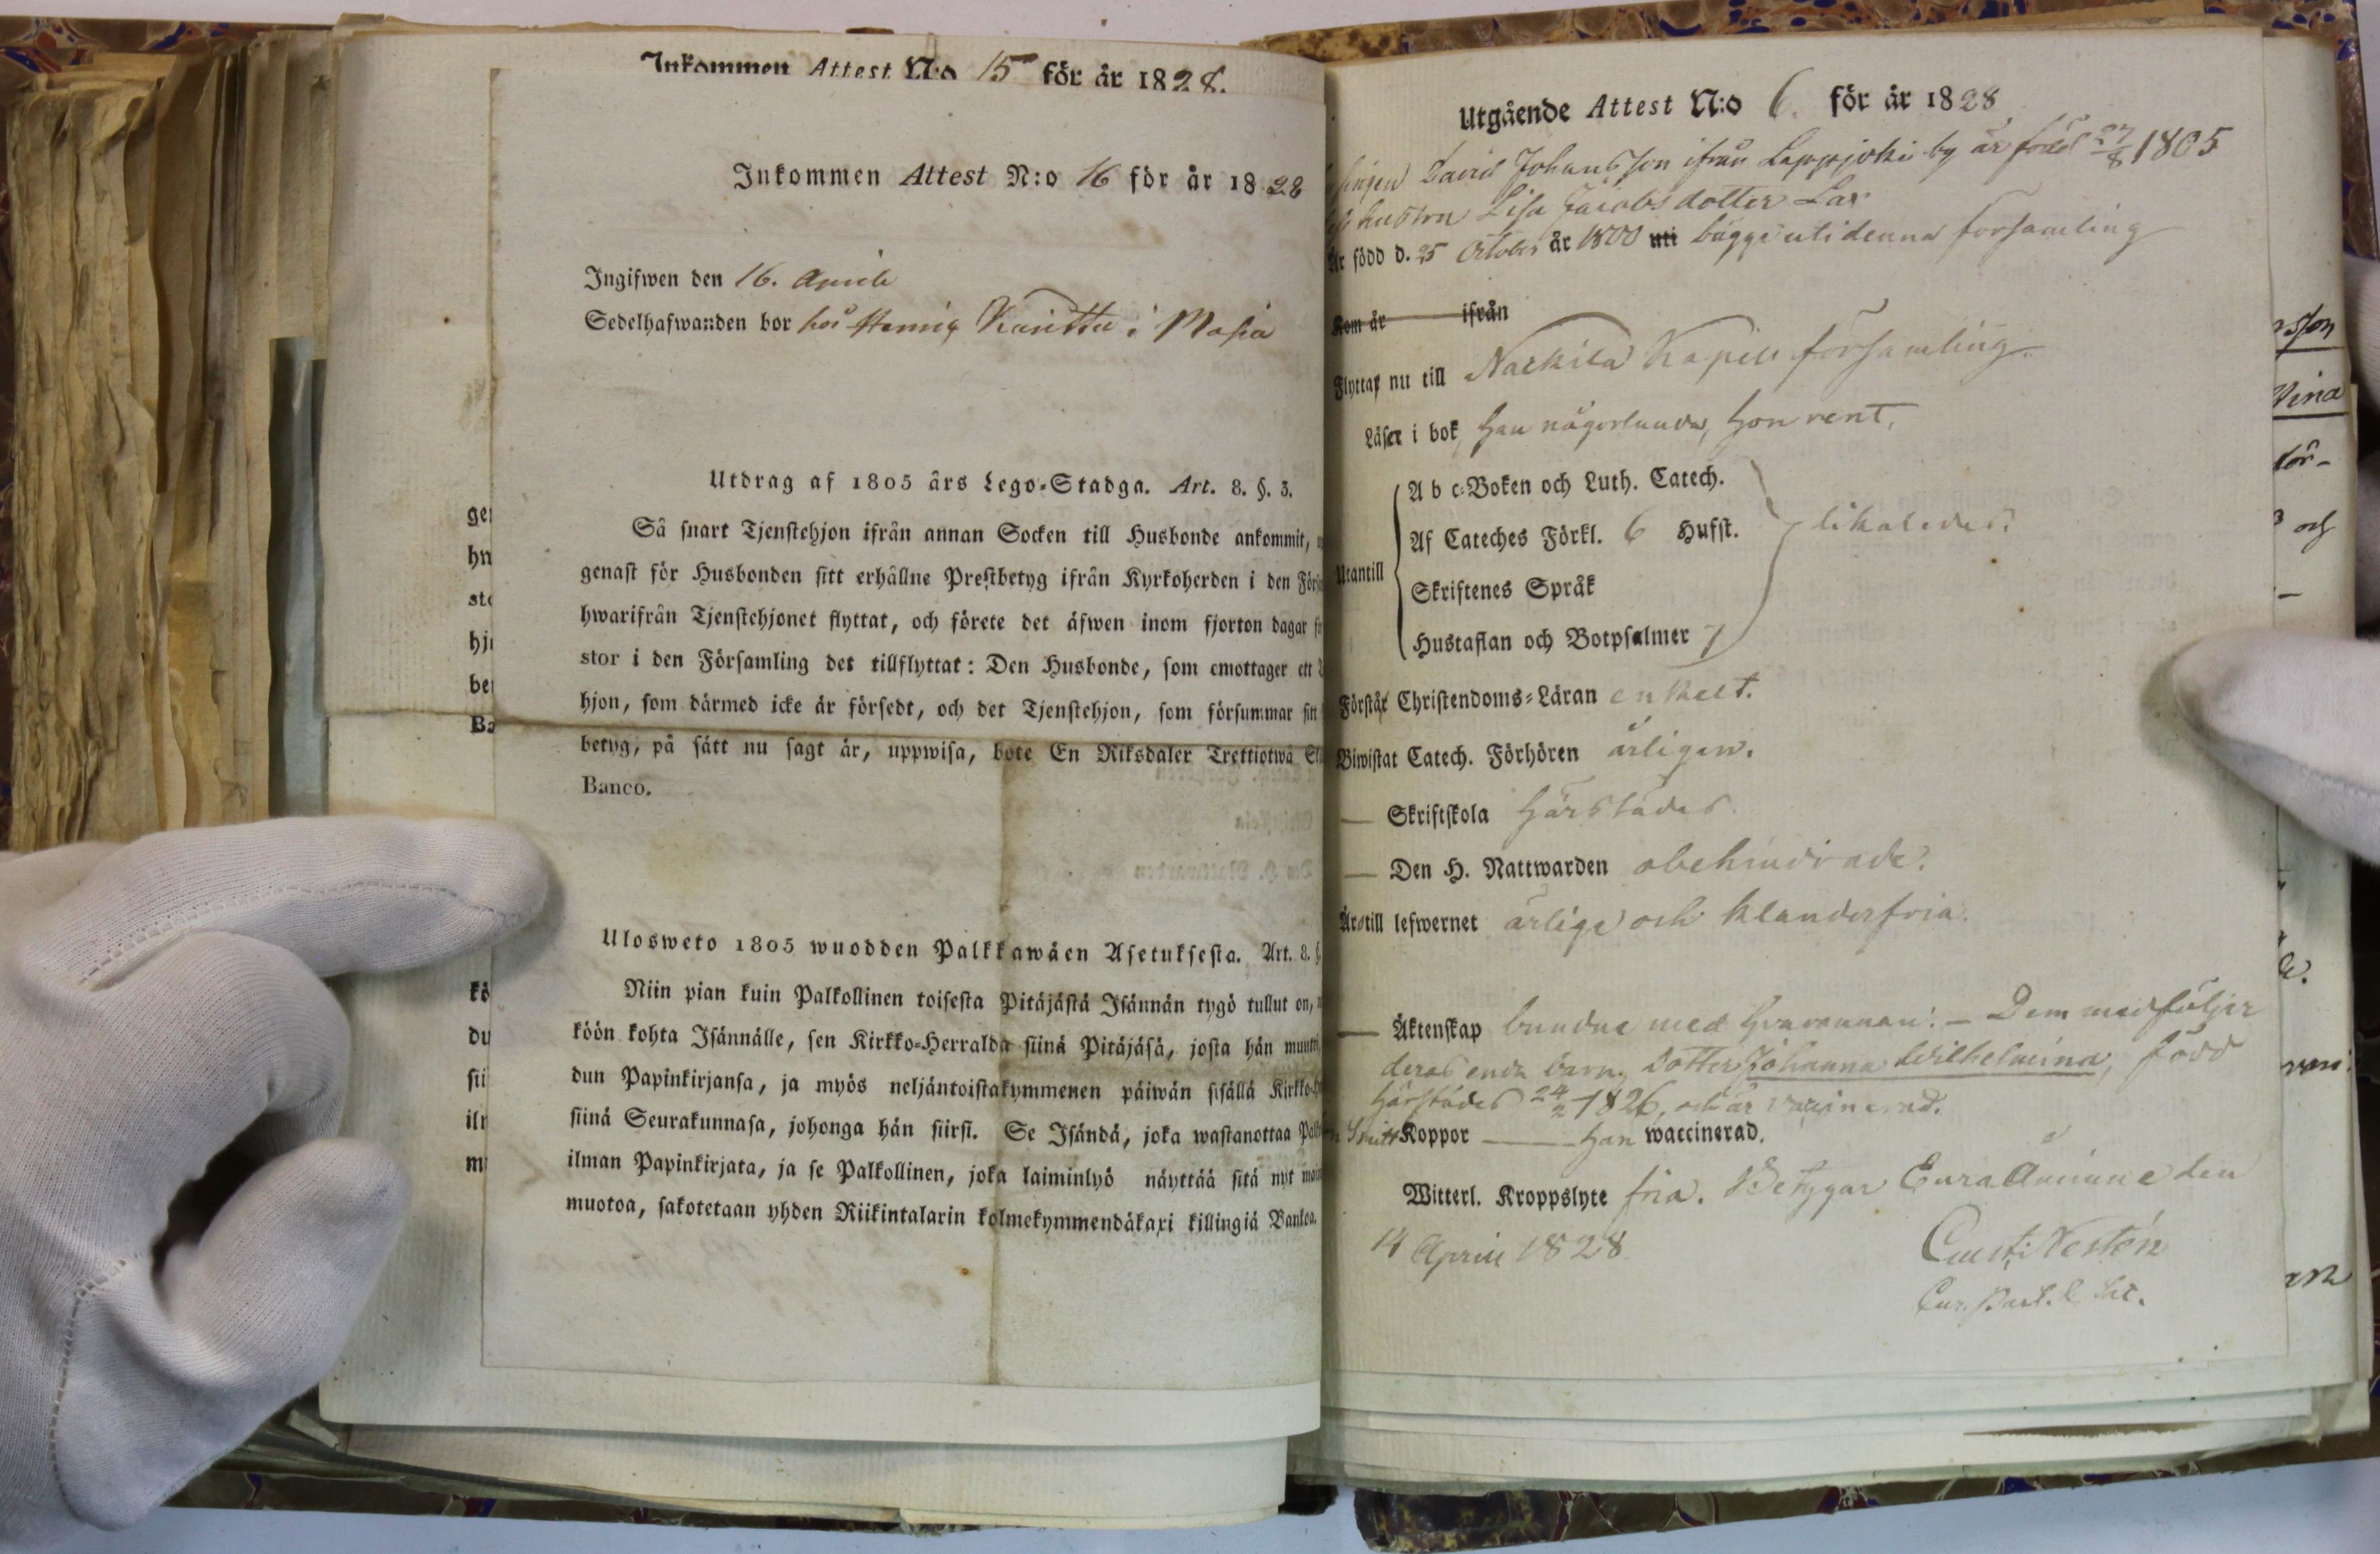 Inkommen Attest N:o 15 för år 1828.
Inkommen Attest N:o 16 för år 1828
Ingifwen den 16. Aprile
Sedelhafwanden bor hos Kauttu i Masia
Utdrag af 1805 års Lego-Stadga. Art. 8. §. 3.
Så snart Tjenstehjon ifrån annan Socken till Husbonde ankommit,
genast för Husbonden sitt erhållne Prestbetyg ifrån Kyrkoherden i den
hwarifrån Tjenstehjonet flyttat, och förete det äfwen inom fjorton dagar
stor i den Församling det tillflyttat: Den Husbonde, som emottager ett
hjon, som därmed icke är försedt, och det Tjenstehjon, som försummar sitt
betyg, på sätt nu sagt är, uppwisa, bote En Riksdaler Trettiotwå
Banco.
Ulosweto 1805 wuodden Palkkawäen Asetuksesta. Art. 8.
Niin pian kuin Palkollinen toisesta Pitäjästä Isännän tygö tullut on,
köön kohta Isännälle, sen Kirkko-Herralda siinä Pitäjäsä, josta hän
dun Papinkirjansa, ja myös neljäntoistakymmenen päiwän sisällä
siinä Seurakunnasa, johonga hän siirsi. Se Isändä, joka wastanottaa
ilman Papinkirjata, ja se Palkollinen, joka laiminlyö näyttää sitä nyt
muotoa, sakotetaan yhden Riikintalarin kolmekymmendäkaxi killingiä Bankoa.
ge
hn
sto
hj
be
Ba
kö
du
sii
il
m
Utgående Attest N:o 6. för år 1828
David Johansson ifrån Lappjoki by är född 27/8 1805
hustru Lisa Jacobsdotter
Är född d. 25 October år 1800 uti bägge uti denna församling
Kom år ifrån
Flyttar nu till Nackila Kapell församling.
Läser i bok han någorlunda, hon rent.
A b c-Boken och Luth. Catech.
Af Cateches Förkl. 6 Hufst. likaledes.
Utantill
Skriftenes Språk
Hustaflan och Botpsalmer 7
Förstår Christendoms-Läran enkelt.
Biwistat Catech. Förhören årligen.
— Skriftskola härstädes
— Den H. Nattwarden obehindrade.
Äro till lefwernet ärliga och klanderfria.
— Äktenskap bundna med hvarannan. — Dem medföljer
deras enda barn, Dotter Johanna Wilhelmina, född
härstädes 24/2 1826, och är vaccinerad.
Koppor — han waccinerad.
Witterl. Kroppslyte fria. Betygar Euraåminne den
14 April 1828
Nestén
Cur. Past. l. Sac.
sson
Vina
för-
och